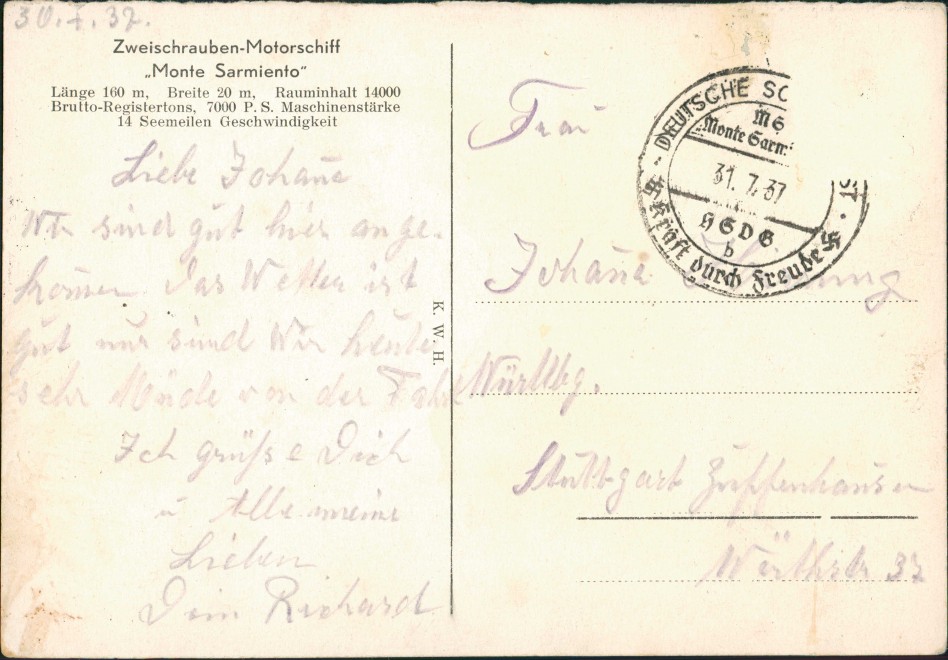 30.7.37.
Zweischrauben-Motorschiff
„Monte Sarmiento“
Länge 160 m, Breite 20 m, Rauminhalt 14000
Brutto-Registertons, 7000 P. S. Maschinenstärke
14 Seemeilen Geschwindigkeit
Liebe Johane
Wir sind gut hier ange-
komen das Wetter ist
gut nur sind Wir heute
sehr Müde von der Fahrt
Ich grüße Dich
u Alle meine
Lieben
Dein Richard
K. W. H.
DEUTSCHE SC
MS
„Monte Sarm
31.7.37
HSDG
b
ST
Kraft durch Freude
Frau
Johane
Württbg.
Stuttgart Zuffenhausen
37